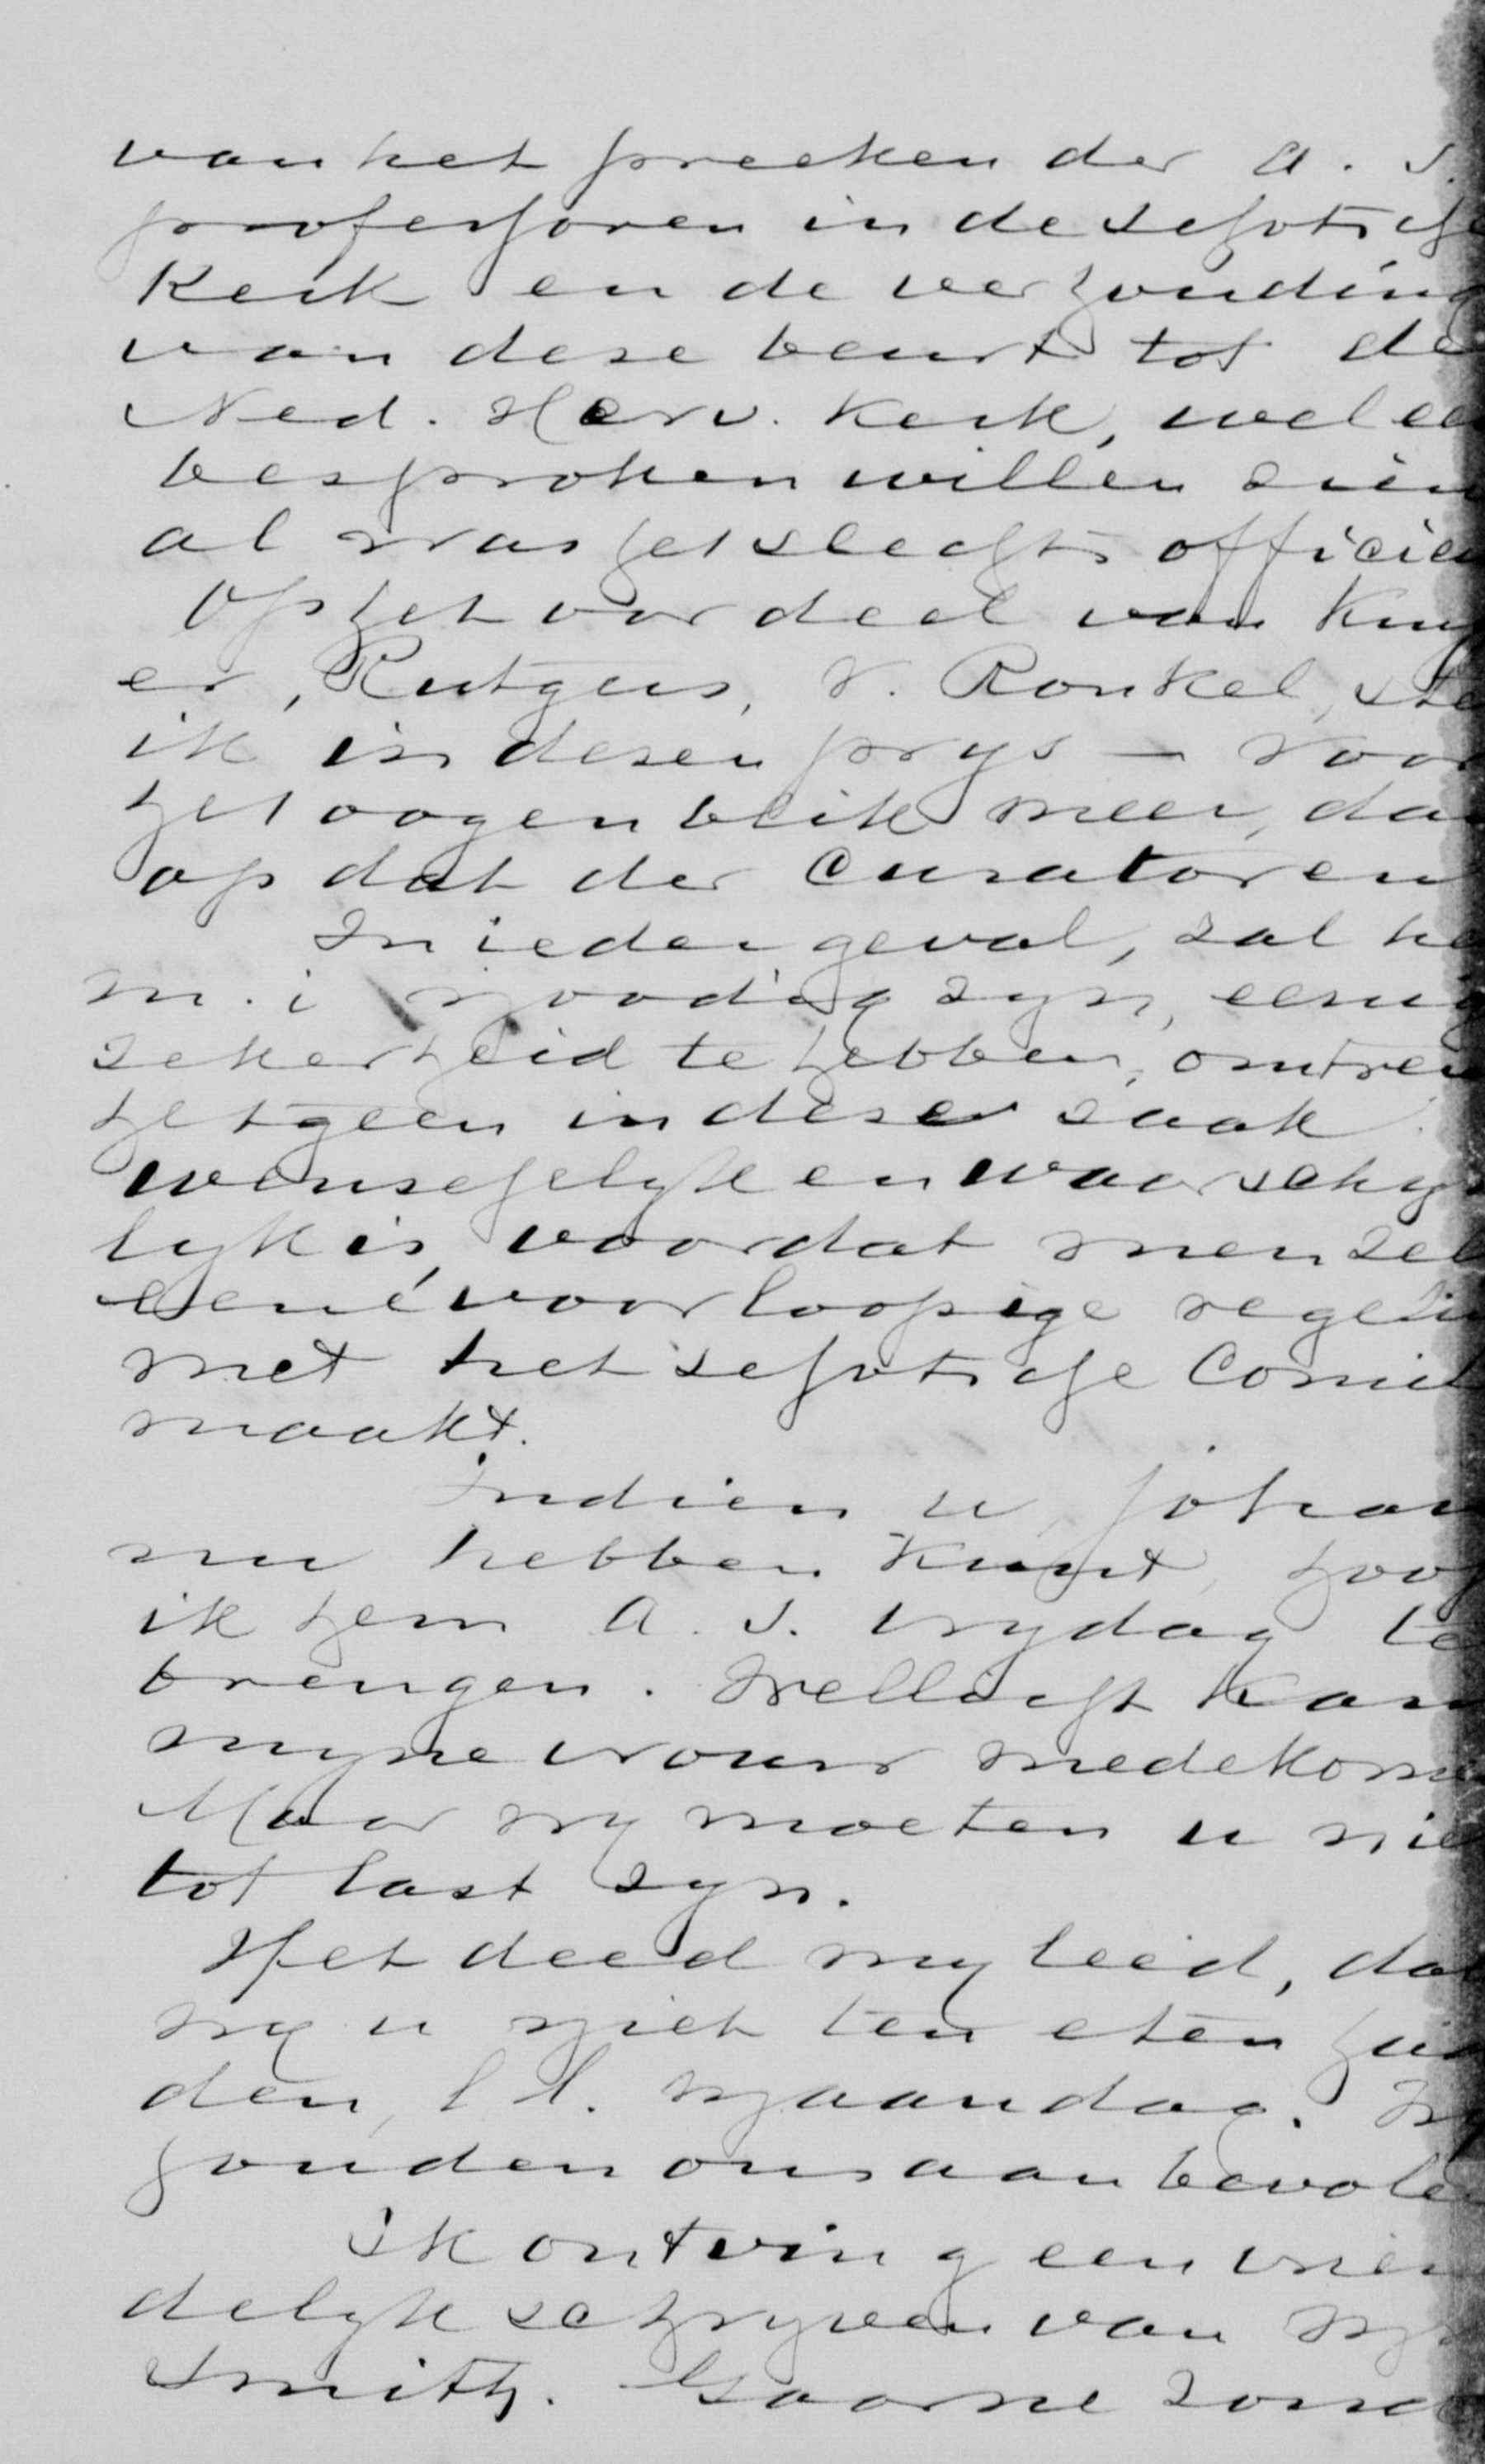 van het preeken der a. s.
professoren in de schotsche
Kerk en de verhouding
van deze beurt tot de
Ned. Herv. Kerk, wel ee
besproken willen zien
al was het slechts officiee
Op het oordeel van Kuy
er, Rutgers, v. Ronkel, ste
ik in dezen prys — voor
het oogenblik meer, dan
op dat der Curatoren
In ieder geval, zal he
m. i noodig zyn, eenig
zekerheid te hebben, omtren
hetgeen in deze zaak
wenschelyk en waarschyn
lyk is, voordat men zel
eene voorloopige regelin
met het schotsche Comit
maakt.
Indien u Johan
nu hebben kunt, hoop
ik hem a. s. vrydag te
brengen. Wellicht kan
myne vrouw medekome
Maar wy moeten u nie
tot last zyn.
Het deed my leed, dat
wy u niet ten eten hie
den, l l. maandag. Wy
houden ons aanbevole
Ik ontving een vrien
delyk schryven van
Smith. Gaarne zond